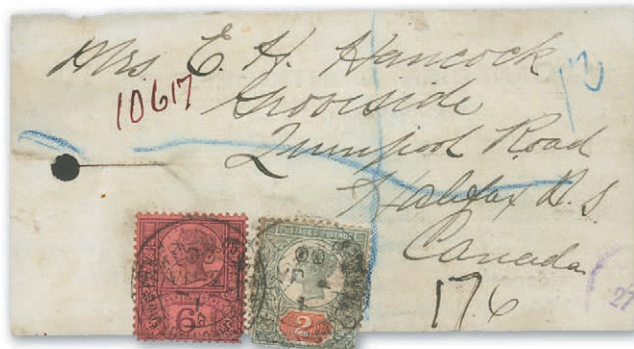 Mrs E. H. Hancock
10617
Grooveside
Quinpool Road
Halifax N.S
Canada
176
6D
POSTAGE & REVENUE
2
27